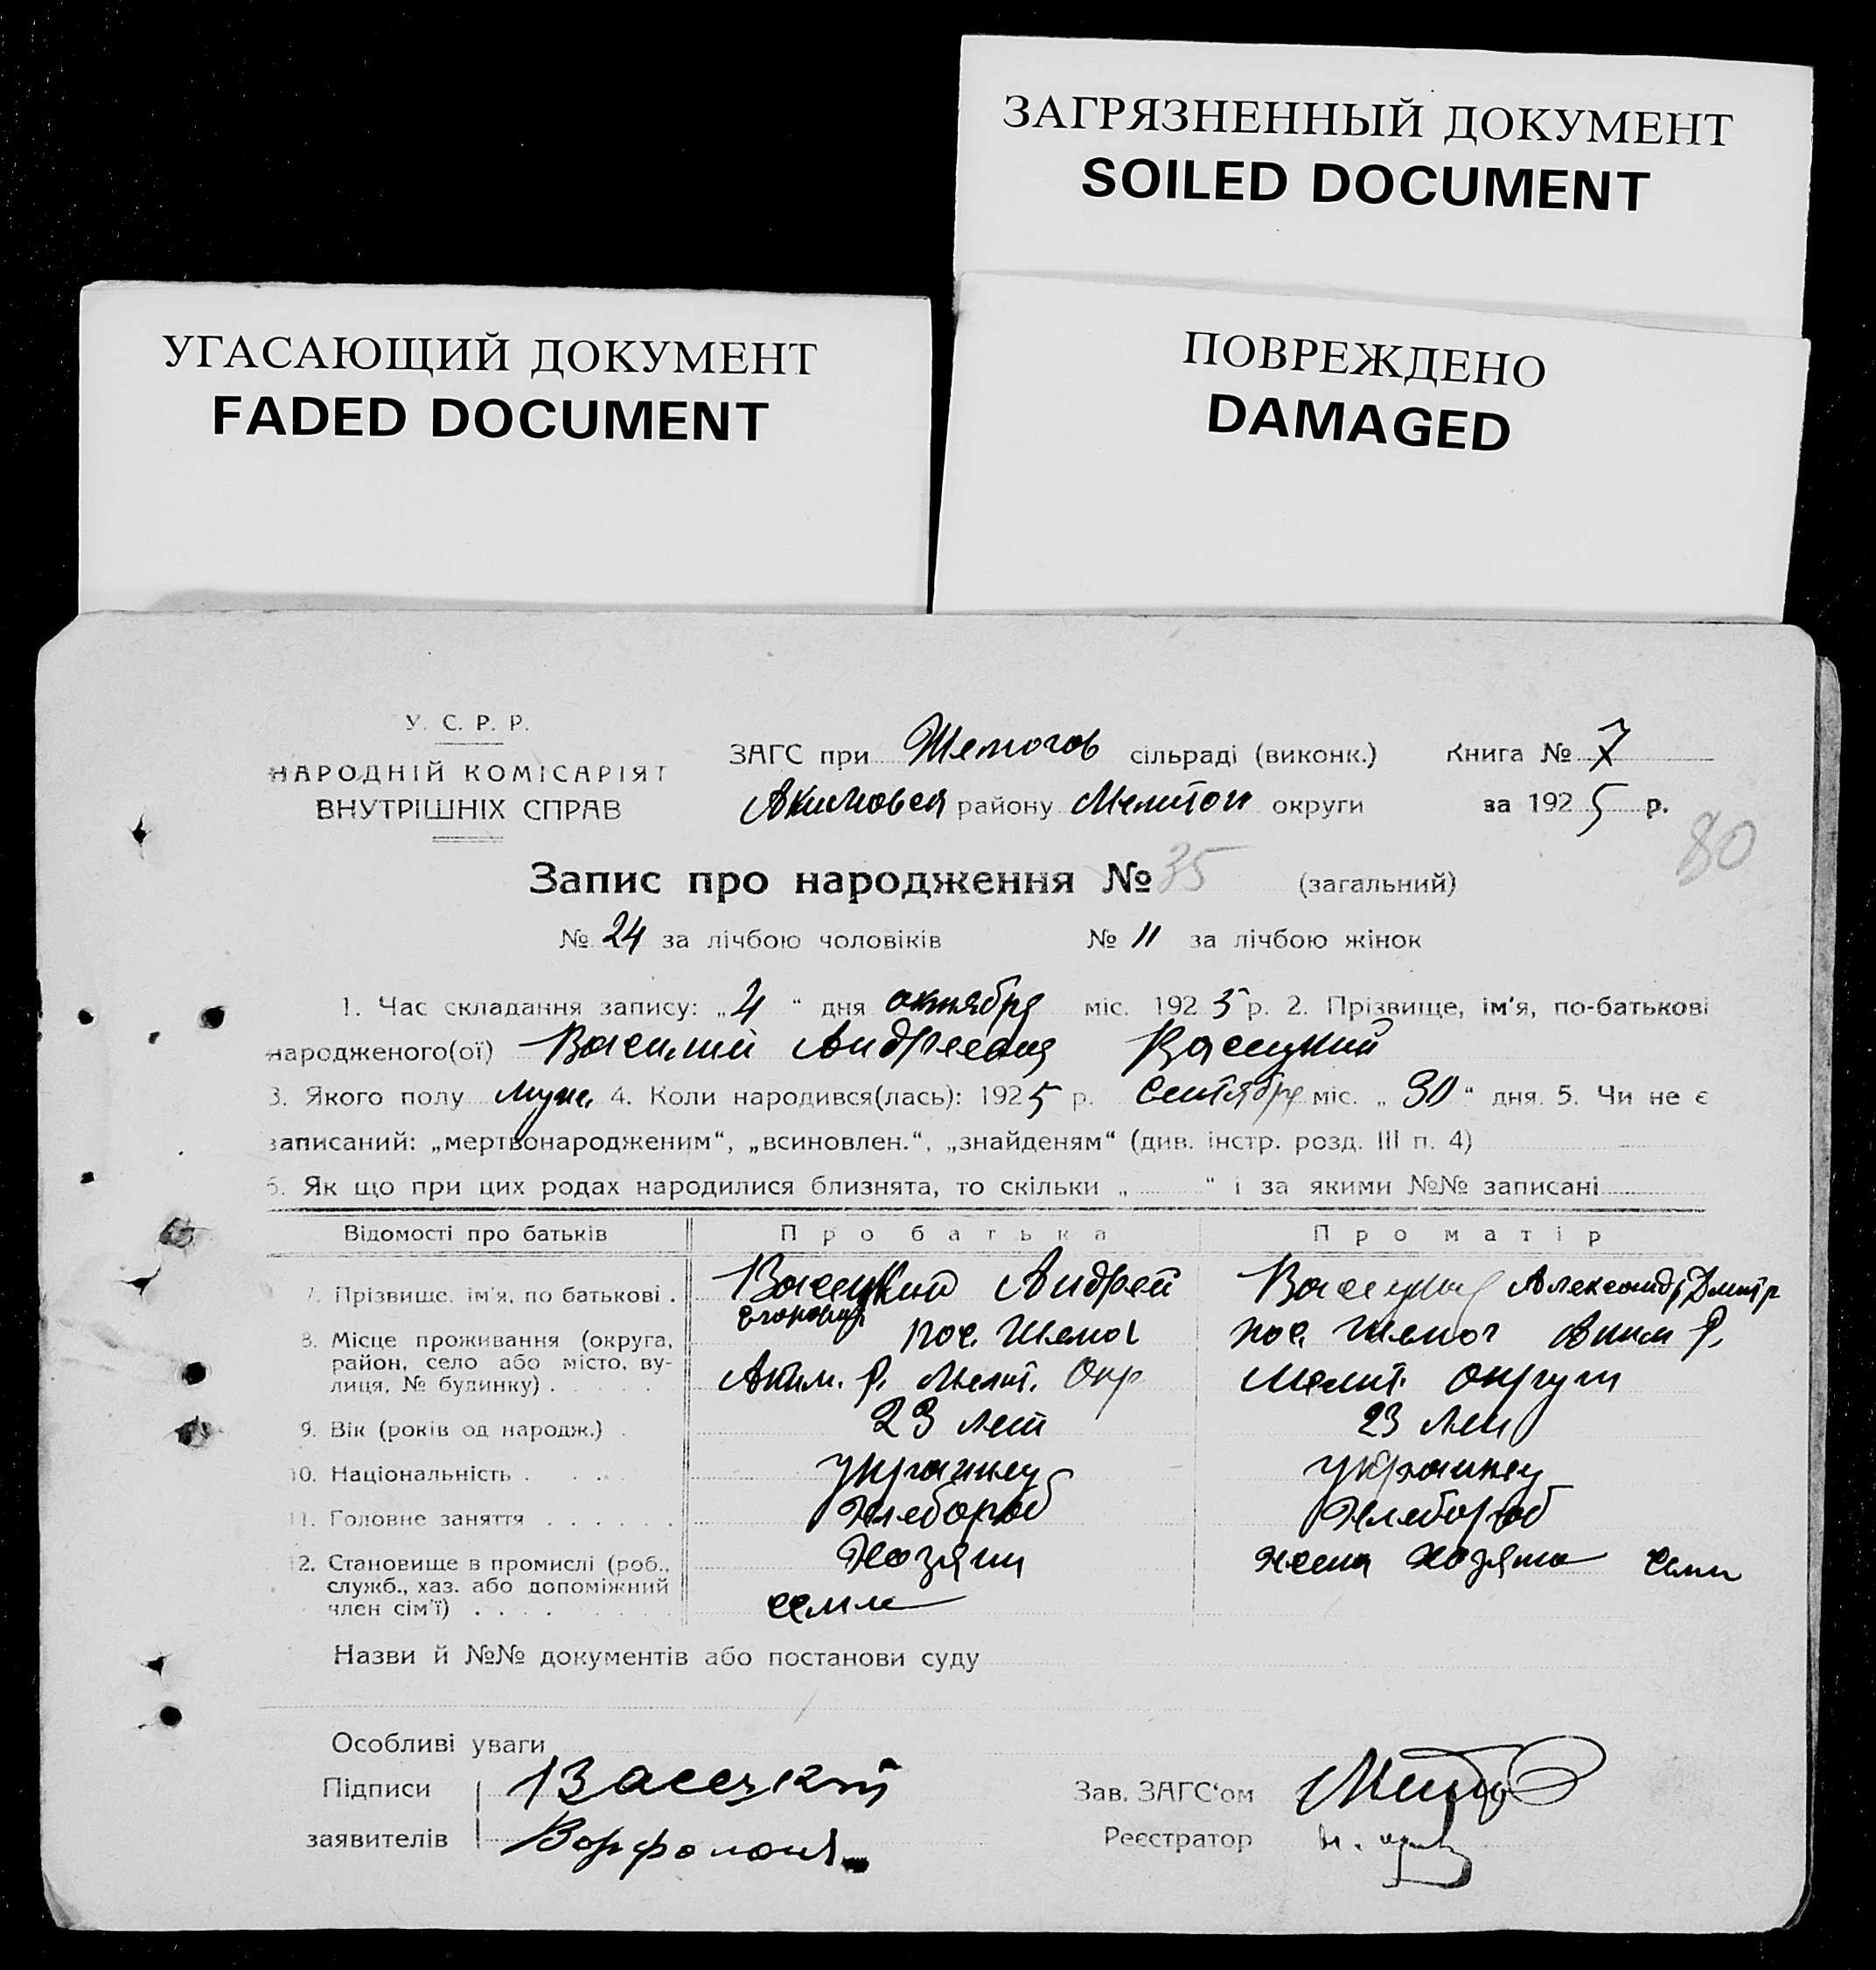 ЗАГРЯЗНЕННЫЙ ДОКУМЕНТ
SOILED DOCUMENT
УГАСАЮЩИЙ ДОКУМЕНТ
FADED DOCUMENT
ПОВРЕЖДЕНО
DAMAGED
У. С. Р. Р.
НАРОДНІЙ КОМІСАРІЯТ
ВНУТРІШНІХ СПРАВ
ЗАГС при Шемогов сільраді (виконк.) Книга № 7
Акимовся району Мелитоп округи за 1925 р.
80
Запис про народження № 35 (загальний)
№ 24 за лічбою чоловіків № 11 за лічбою жінок
1. Час складання запису: „4“ дня октября міс. 1925 р. 2. Прізвище, ім'я, по-батькові
народженого(ої) Василий Андреевич Васецкий
3. Якого полу муж. 4. Коли народився(лась): 1925 р. Сентября міс. „30“ дня. 5. Чи не є
записаний: „мертвонародженим“, „всиновлен.“, „знайденям“ (див. інстр. розд. III п. 4)
6. Як що при цих родах народилися близнята, то скільки „ “ і за якими №№ записані
Відомості про батьків Про батька Про матір
7. Прізвище, ім'я, по батькові . Васецкий Андрей Васецкая Александр Дмитр
8. Місце проживання (округа, район, село або місто, вулиця, № будинку) . пос. Шемог пос. Шемог Аким Р.
Аким. Р. Мелит. Окр Мелит. округи
9. Вік (років од народж.) . 23 лет 23 лет
10. Національність . . . украинец украинец
11. Головне заняття . . . . . . Хлебороб Хлебороб
12. Становище в промислі (роб., служб., хаз. або допоміжний член сім'ї) . . . . Хозяин жена хозяина семи
семи
Назви й №№ документів або постанови суду
Особливі уваги
Підписи Васецкий Зав. ЗАГС'ом
заявителів Реєстратор